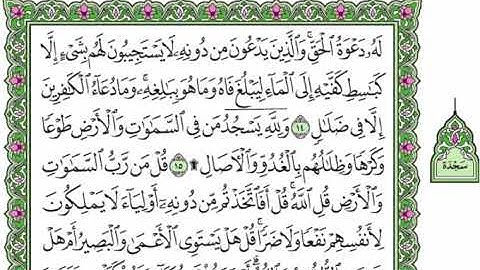 لَهُۥ دَعْوَةُ ٱلْحَقِّ وَٱلَّذِينَ يَدْعُونَ مِن دُونِهِۦ لَا يَسْتَجِيبُونَ لَهُم بِشَىْءٍ إِلَّا
كَبَـٰسِطِ كَفَّيْهِ إِلَى ٱلْمَآءِ لِيَبْلُغَ فَاهُ وَمَا هُوَ بِبَـٰلِغِهِۦ وَمَا دُعَآءُ ٱلْكَـٰفِرِينَ
إِلَّا فِى ضَلَـٰلٍ ١٤ وَلِلَّهِ يَسْجُدُ مَن فِى ٱلسَّمَـٰوَٰتِ وَٱلْأَرْضِ طَوْعًا
وَكَرْهًا وَظِلَـٰلُهُم بِٱلْغُدُوِّ وَٱلْـَٔاصَالِ ۩ ١٥ قُلْ مَن رَّبُّ ٱلسَّمَـٰوَٰتِ
وَٱلْأَرْضِ قُلِ ٱللَّهُ قُلْ أَفَٱتَّخَذْتُم مِّن دُونِهِۦٓ أَوْلِيَآءَ لَا يَمْلِكُونَ
لِأَنفُسِهِمْ نَفْعًا وَلَا ضَرًّا قُلْ هَلْ يَسْتَوِى ٱلْأَعْمَىٰ وَٱلْبَصِيرُ أَمْ هَلْ
سَجْدَة